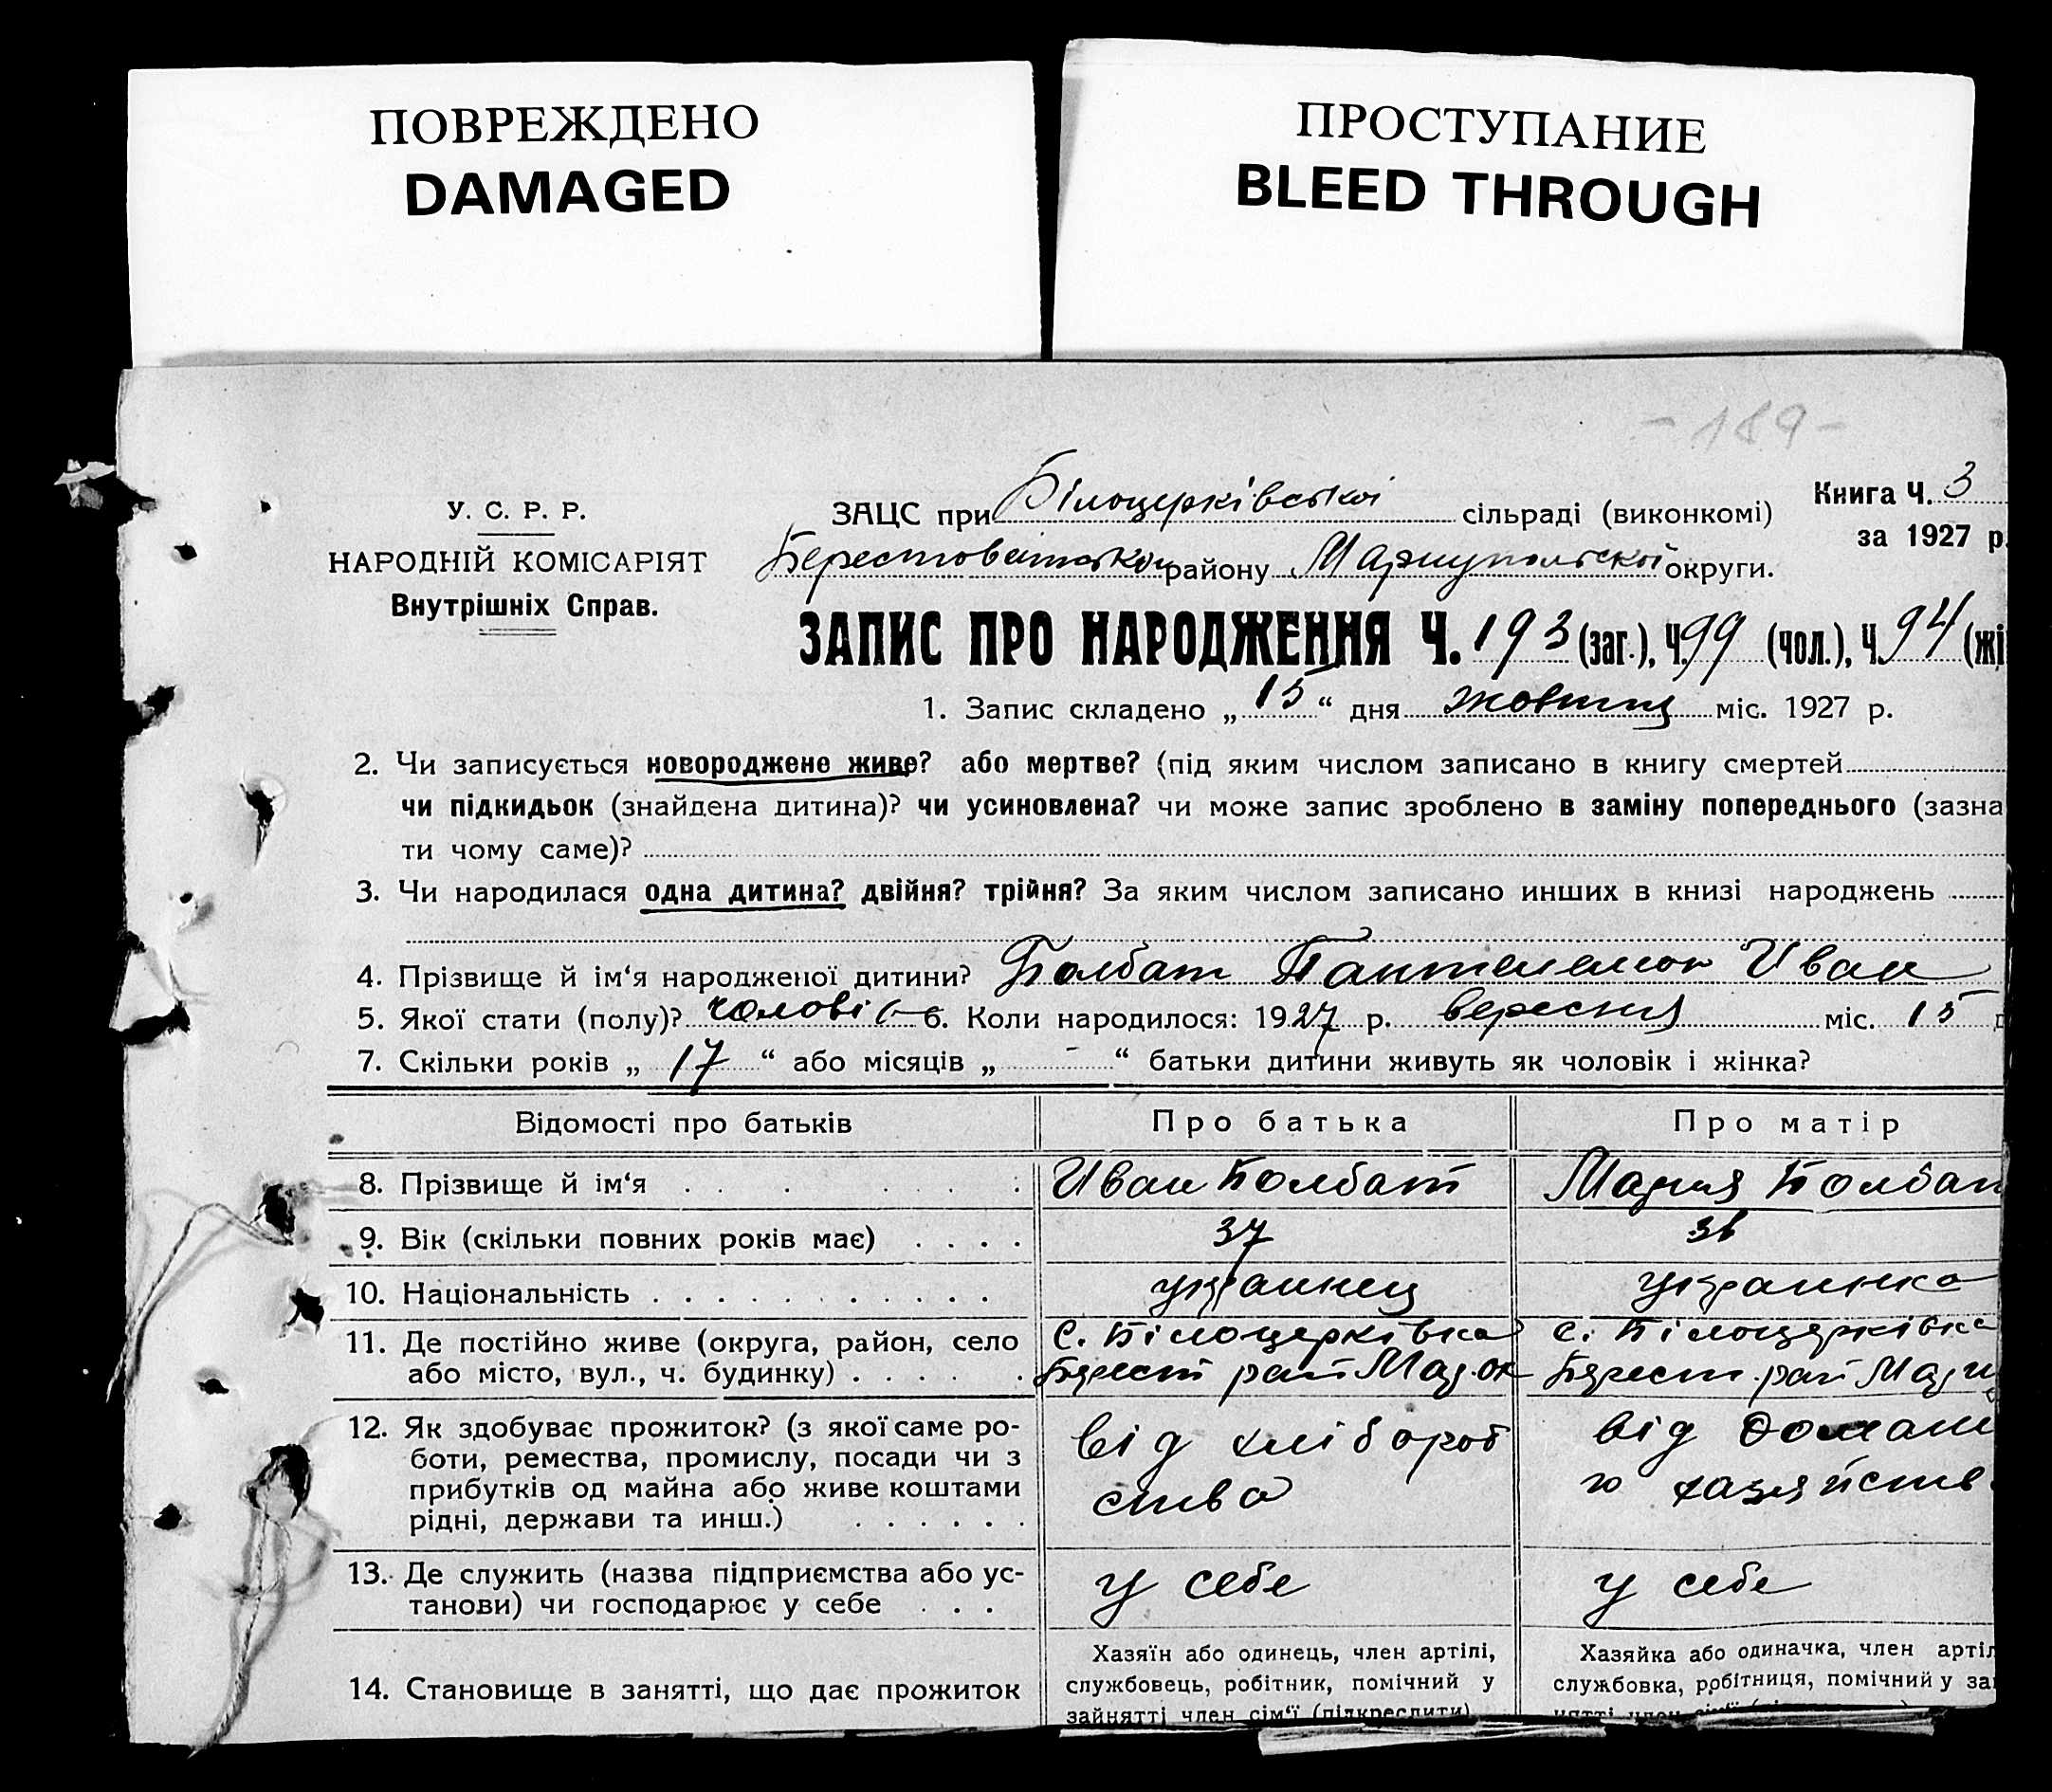 ПОВРЕЖДЕНО
DAMAGED
ПРОСТУПАНИЕ
BLEED THROUGH
- 189 -
У. С. Р. Р.
НАРОДНІЙ КОМІСАРІЯТ
Внутрішніх Справ.
ЗАЦС при Білоцерківської сільраді (виконкомі)
Книга Ч. 3
за 1927 р.
району Мариупольской округи.
ЗАПИС ПРО НАРОДЖЕННЯ Ч. 193 (заг.), Ч. 99 (чол.), Ч. 94 (жі
1. Запис складено „ 15 “ дня жовтня міс. 1927 р.
2. Чи записується новороджене живе? або мертве? (під яким числом записано в книгу смертей
чи підкидьок (знайдена дитина)? чи усиновлена? чи може запис зроблено в заміну попереднього (зазна
ти чому саме)?
3. Чи народилася одна дитина? двійня? трійня? За яким числом записано инших в книзі народжень
4. Прізвище й ім‘я народженої дитини? Болбат Пантелемон Иван
5. Якої стати (полу)? чоловік 6. Коли народилося: 1927 р. вересня міс. 15 д
7. Скільки років „ 17 “ або місяців „ - “ батьки дитини живуть як чоловік і жінка?
Відомості про батьків
Про батька
Про матір
8. Прізвище й ім‘я
Иван Болбат
Мария Болбат
9. Вік (скільки повних років має)
37
10. Національність
украинец
украинка
11. Де постійно живе (округа, район, село
або місто, вул., ч. будинку)
С. Білоцерківка
Берест рай Мар. ок
С. Білоцерківка
Берест. рай Мариу
12. Як здобуває прожиток? (з якої саме ро-
боти, ремества, промислу, посади чи з
прибутків од майна або живе коштами
рідні, держави та инш.)
від хлібороб
ства
від домаш
ю хазяйств
13. Де служить (назва підприємства або ус-
танови) чи господарює у себе
у себе
у себе
14. Становище в занятті, що дає прожиток
Хазяїн або одинець, член артілі,
службовець, робітник, помічний у
зайнятті член сім‘ї (підкреслити)
Хазяйка або одиначка, член артіл
службовка, робітниця, помічний у за